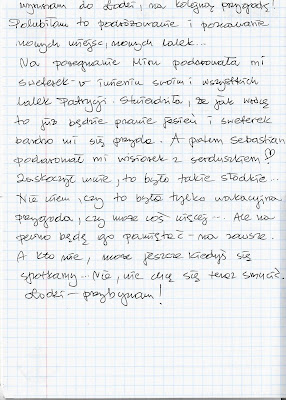 wyruszam do Łodzi, na kolejną przygodę!
Polubiłam to podróżowanie i poznawanie
nowych miejsc, nowych lalek...
Na pożegnanie Miru podarowała mi
sweterek - w imieniu swoim i wszystkich
lalek Patrycji. Stwierdziła, że jak wrócę
to już będzie prawie jesień i sweterek
bardzo mi się przyda. A potem Sebastian
podarował mi wisiorek z serduszkiem! ♡
Zaskoczył mnie, to było takie słodkie...
Nie wiem, czy to była tylko wakacyjna
przygoda, czy może coś więcej... Ale na
pewno będę go pamiętać - na zawsze.
A kto wie, może jeszcze kiedyś się
spotkamy... Nie, nie chcę się teraz smucić.
Łodzi - przybywam!